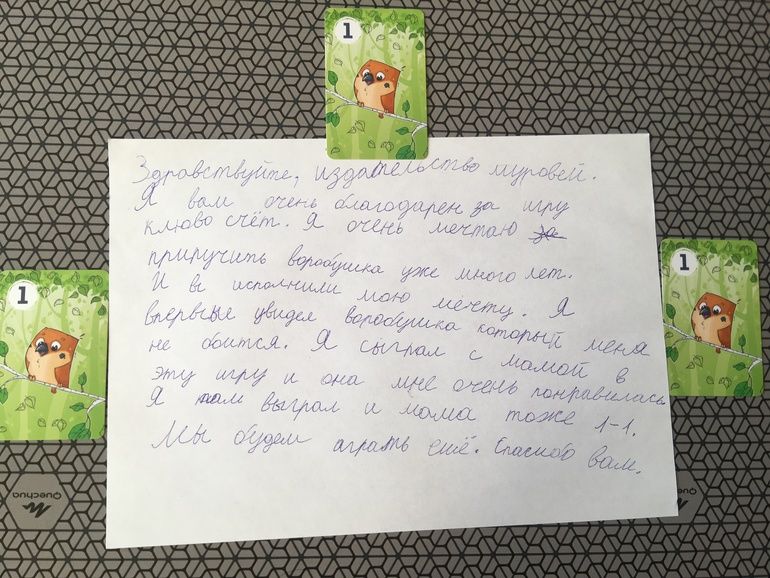 1
Здравствуйте, издательство муровей.
Я вам очень благодарен за игру
клювосчёт. Я очень мечтаю за
приручить воробушка уже много лет.
И вы исполнили мою мечту. Я
впервые увидел воробушка который меня
не боится. Я сыграл с мамой в
эту игру и она мне очень понравилась
Я выграл и мама тоже 1-1.
Мы будем аграть ещё. Спасибо вам.
1
1
Quechua
Quechua